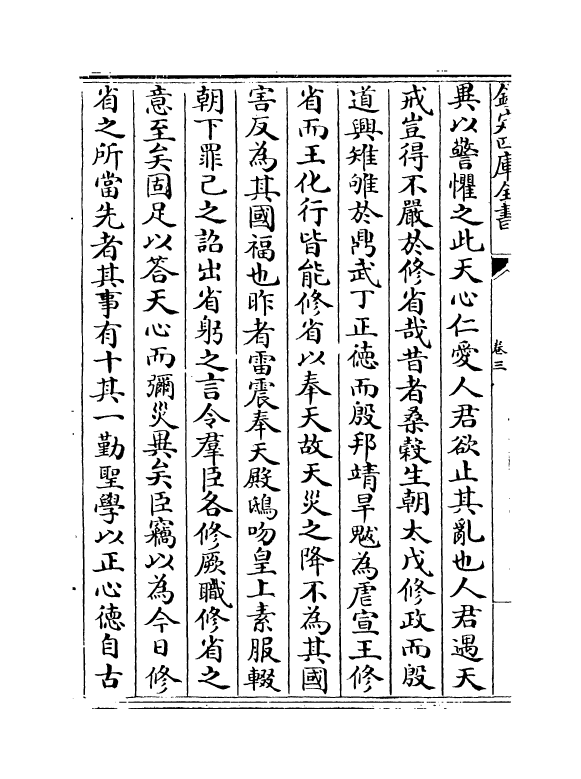 欽定四庫全書
卷三
異以警懼之此天心仁愛人君欲止其亂也人君遇天
戒豈得不嚴於修省哉昔者桑榖生朝太戊修政而殷
道興雉雊於鼎武丁正德而殷邦靖旱魃為虐宣王修
省而王化行皆能修省以奉天故天災之降不為其國
害反為其國福也昨者雷震奉天殿鴟吻皇上素服輟
朝下罪己之詔出省躬之言令羣臣各修厥職修省之
意至矣固足以答天心而彌災異矣臣竊以為今日修
省之所當先者其事有十其一勤聖學以正心德自古